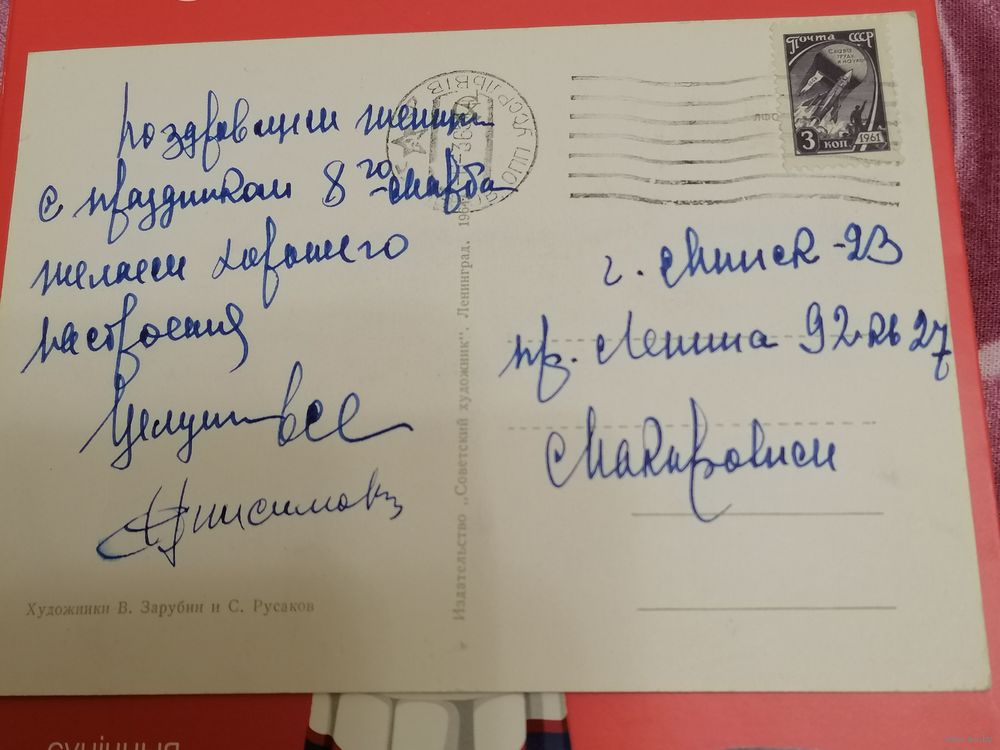 поздравляем женщин
с праздником 8 го марта
желаем хорошего
настроения
Целуем все
Анисимовы
Художники В. Зарубин и С. Русаков
Издательство „Советский художник". Ленинград. 196
ЛЬВІВ
Почта СССР
Слава
труду
и науке
3 коп
1961
г. Минск-23
пр. Ленина 92 кв 27
сунічныя